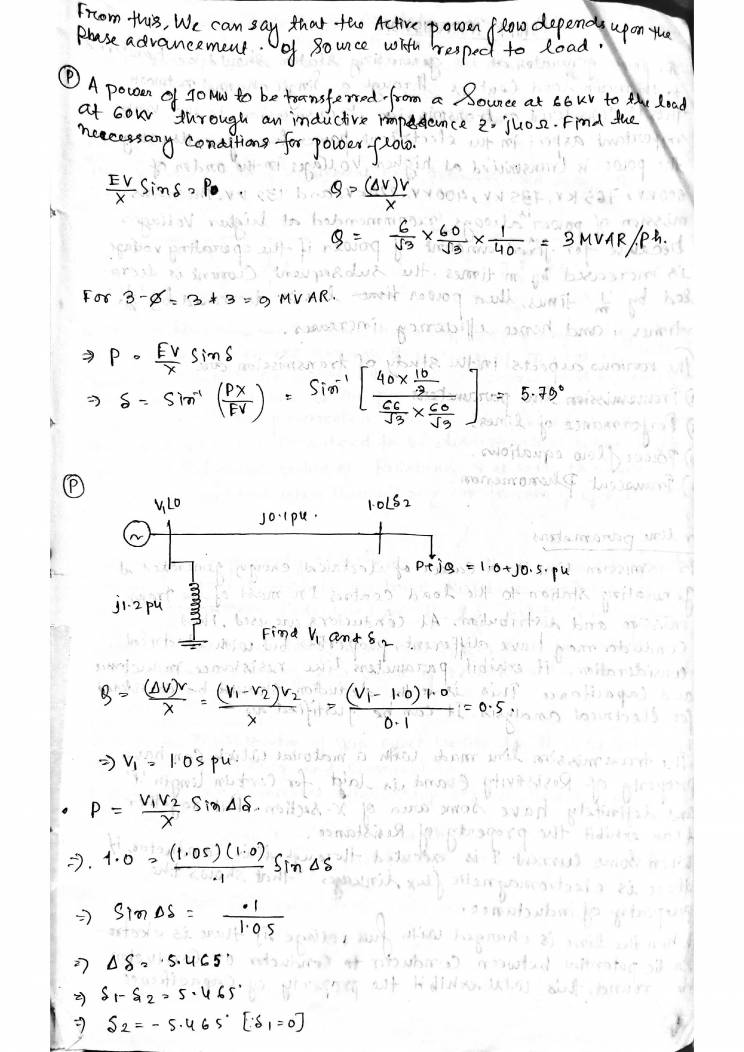 From this, We can say that the Active power flow depends upon the
Phase advancement of source with respect to load.
(P) A power of 10MW to be transferred from a Source at 66KV to the load
at 60KV through an inductive impedance Z = j40Ω. Find the
neccessary conditions for power flow.
EV/X Sinδ = P. Q = (ΔV)V/X
Q = 6/√3 × 60/√3 × 1/40 = 3 MVAR/Ph.
For 3-Ø = 3 * 3 = 9 MVAR.
⇒ P = EV/X Sinδ
⇒ δ = Sin⁻¹ (PX/EV) = Sin⁻¹ [40 × 10/3 / 66/√3 × 60/√3] = 5.79°
(P)
V₁∠0 j0.1pu. 1.0∠δ2
~
P+jQ = 1.0+j0.5 pu
j1.2pu
Find V₁ and δ2
Q = (ΔV)V/X = (V₁-V2)V2/X = (V₁-1.0)1.0/0.1 = 0.5.
⇒ V₁ = 1.05 pu.
• P = V₁V2/X Sin Δδ.
⇒. 1.0 = (1.05)(1.0)/.1 Sin Δδ
⇒ Sin Δδ = .1/1.05
⇒ Δδ = 5.465°
⇒ δ1-δ2 = 5.465°
⇒ δ2 = -5.465° [∵δ1=0]